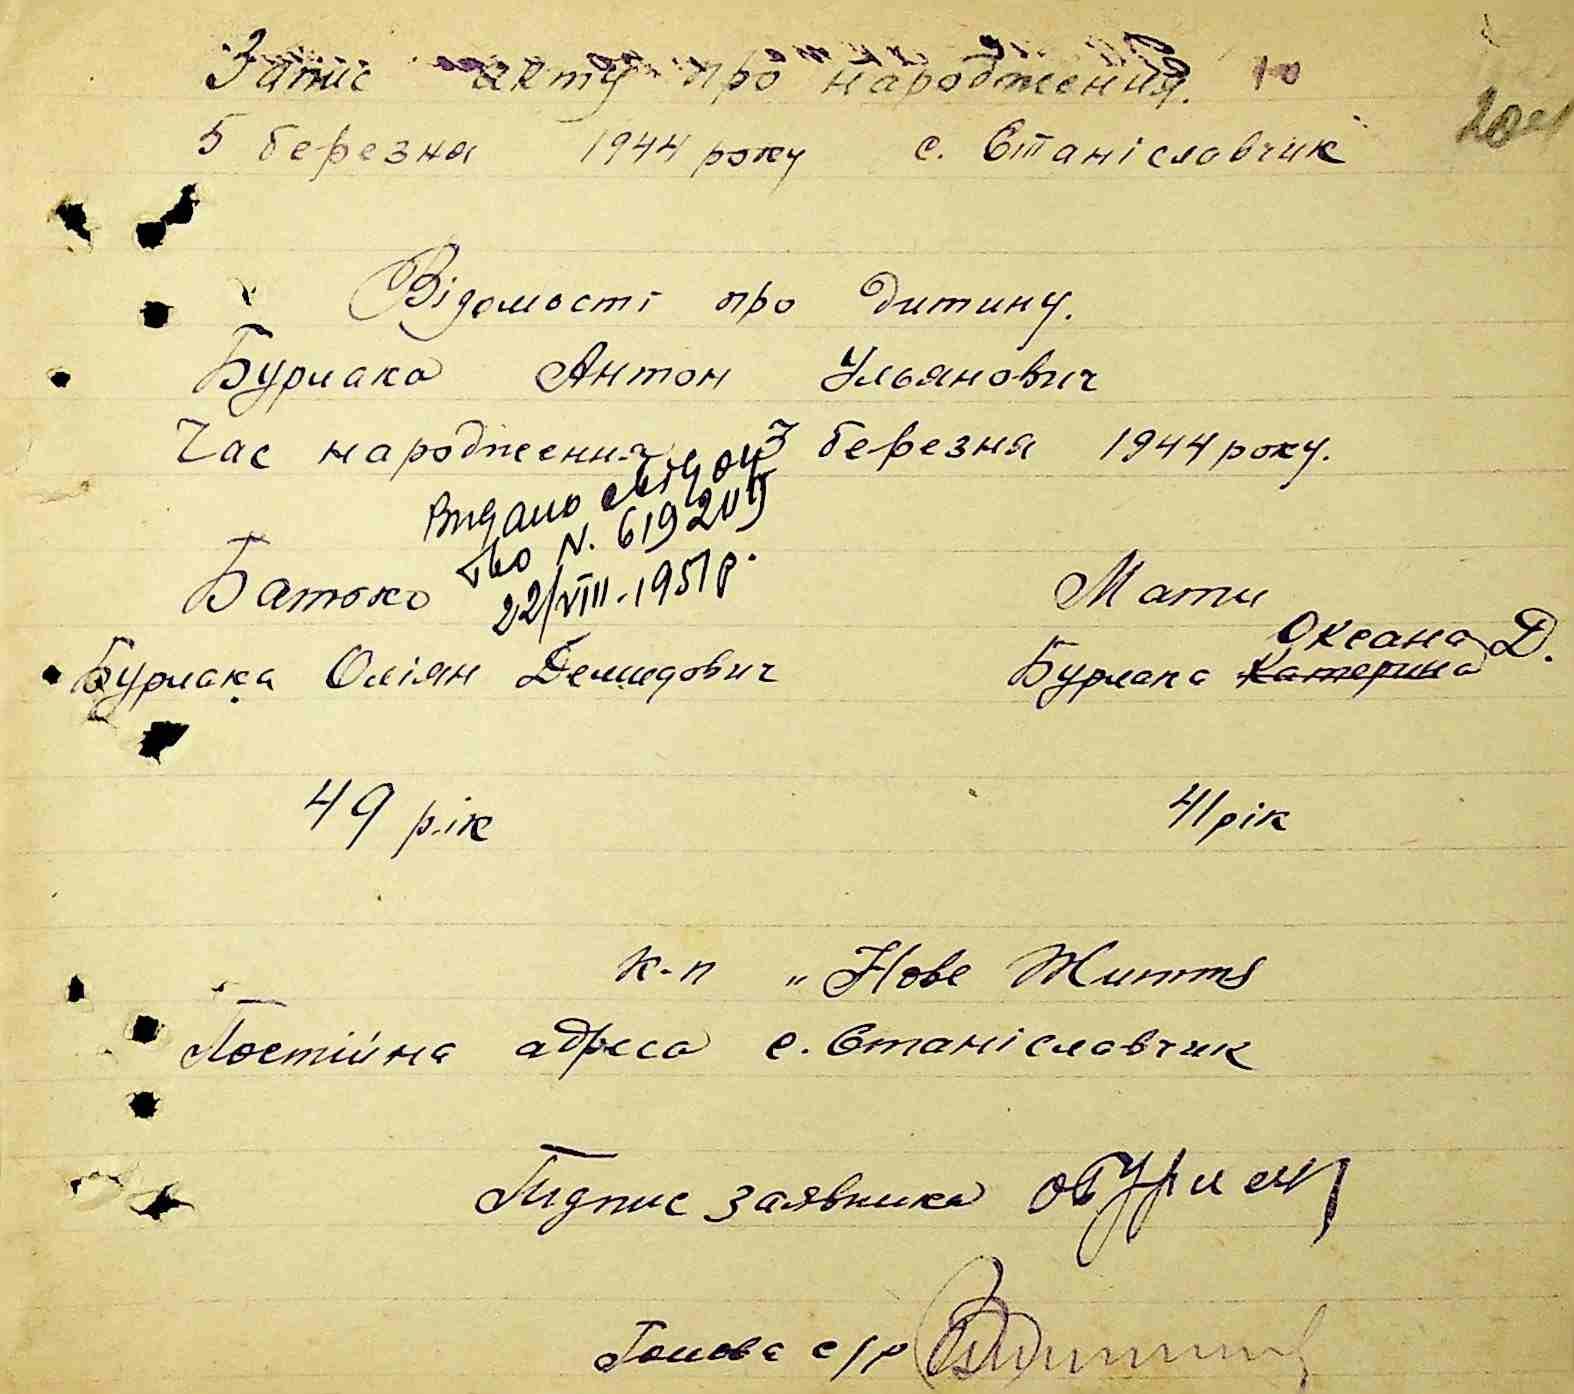 Запис акту про народження. 10
5 березня 1944 року с. Станіславчик
Відомості про дитину.
Бурлака Антон Ульянович
Час народження 3 березня 1944 року.
Видано свідоц
тво N. 619209
22/VIII-1951р.
Батько Мати
Оксана Д.
Бурлака Оліян Демидович Бурлака Катерина
49 рік 41 рік
к-п „Нове Життя
Постійна адреса с. Станіславчик
Підпис заявника
Голова с/р